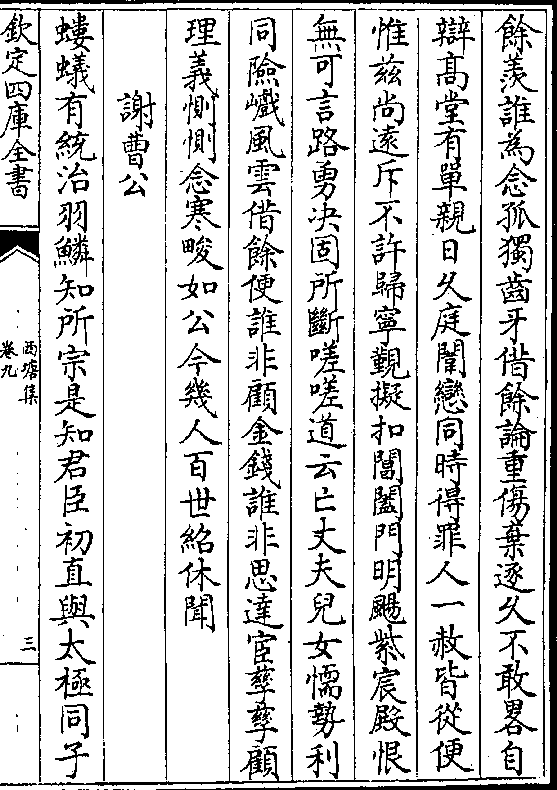 餘羨誰為念孤獨齒牙借餘論重傷棄逐久不敢畧自
辯高堂有單親日久庭闈戀同時得罪人一赦皆從便
惟兹尚逺斥不許歸寧覲擬扣閶闔門明颺紫宸殿恨
無可言路勇決固所斷嗟嗟道云亡丈夫兒女懦勢利
同險巇風雲借餘便誰非顧金錢誰非思達宦孳孳顧
理義惻惻念寒畯如公今幾人百世紹休聞
謝曹公
螻蟻有統治羽鱗知所宗是知君臣初直與太極同子
欽定四庫全書
西塘集
卷九
三